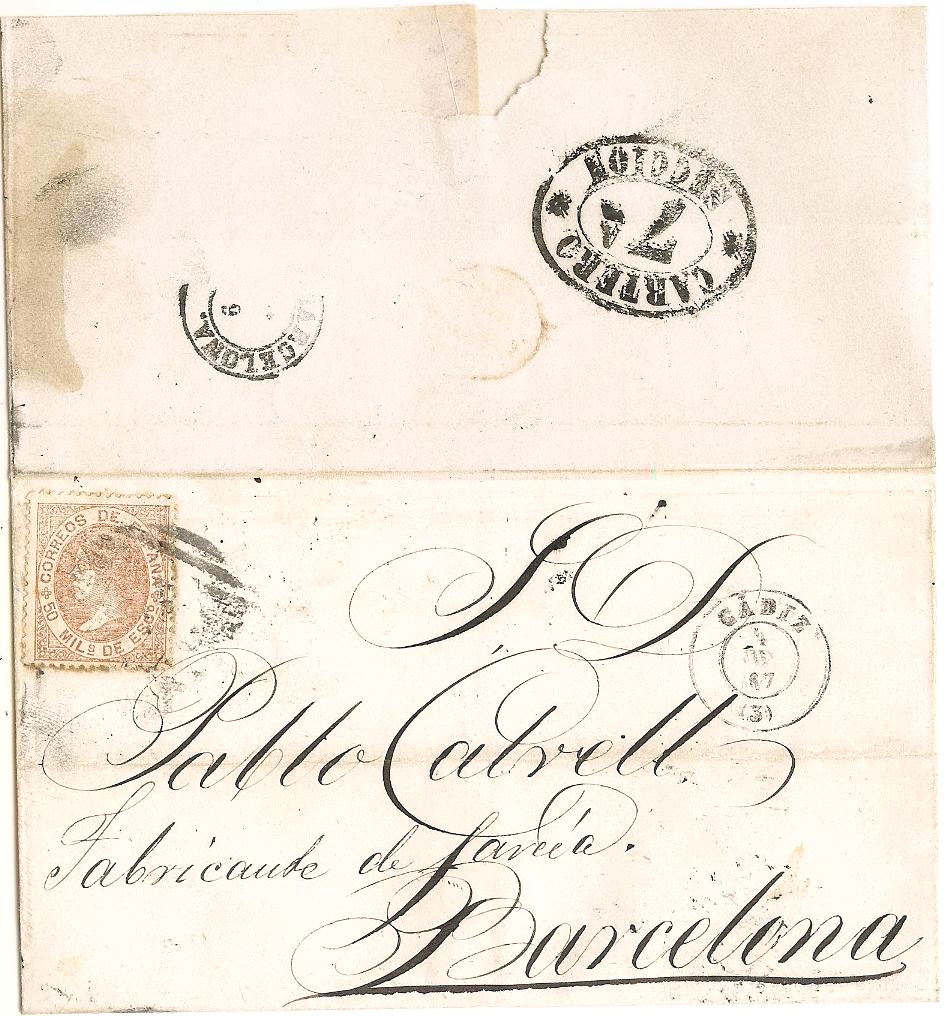 CARTERO
SECCION
7A
BARCELONA
9
CORREOS DE ESPAÑA
50 MIL.s DE ESC.o
S D
CÁDIZ
67
(3)
Pablo Calvell.
Fabricante de
Barcelona